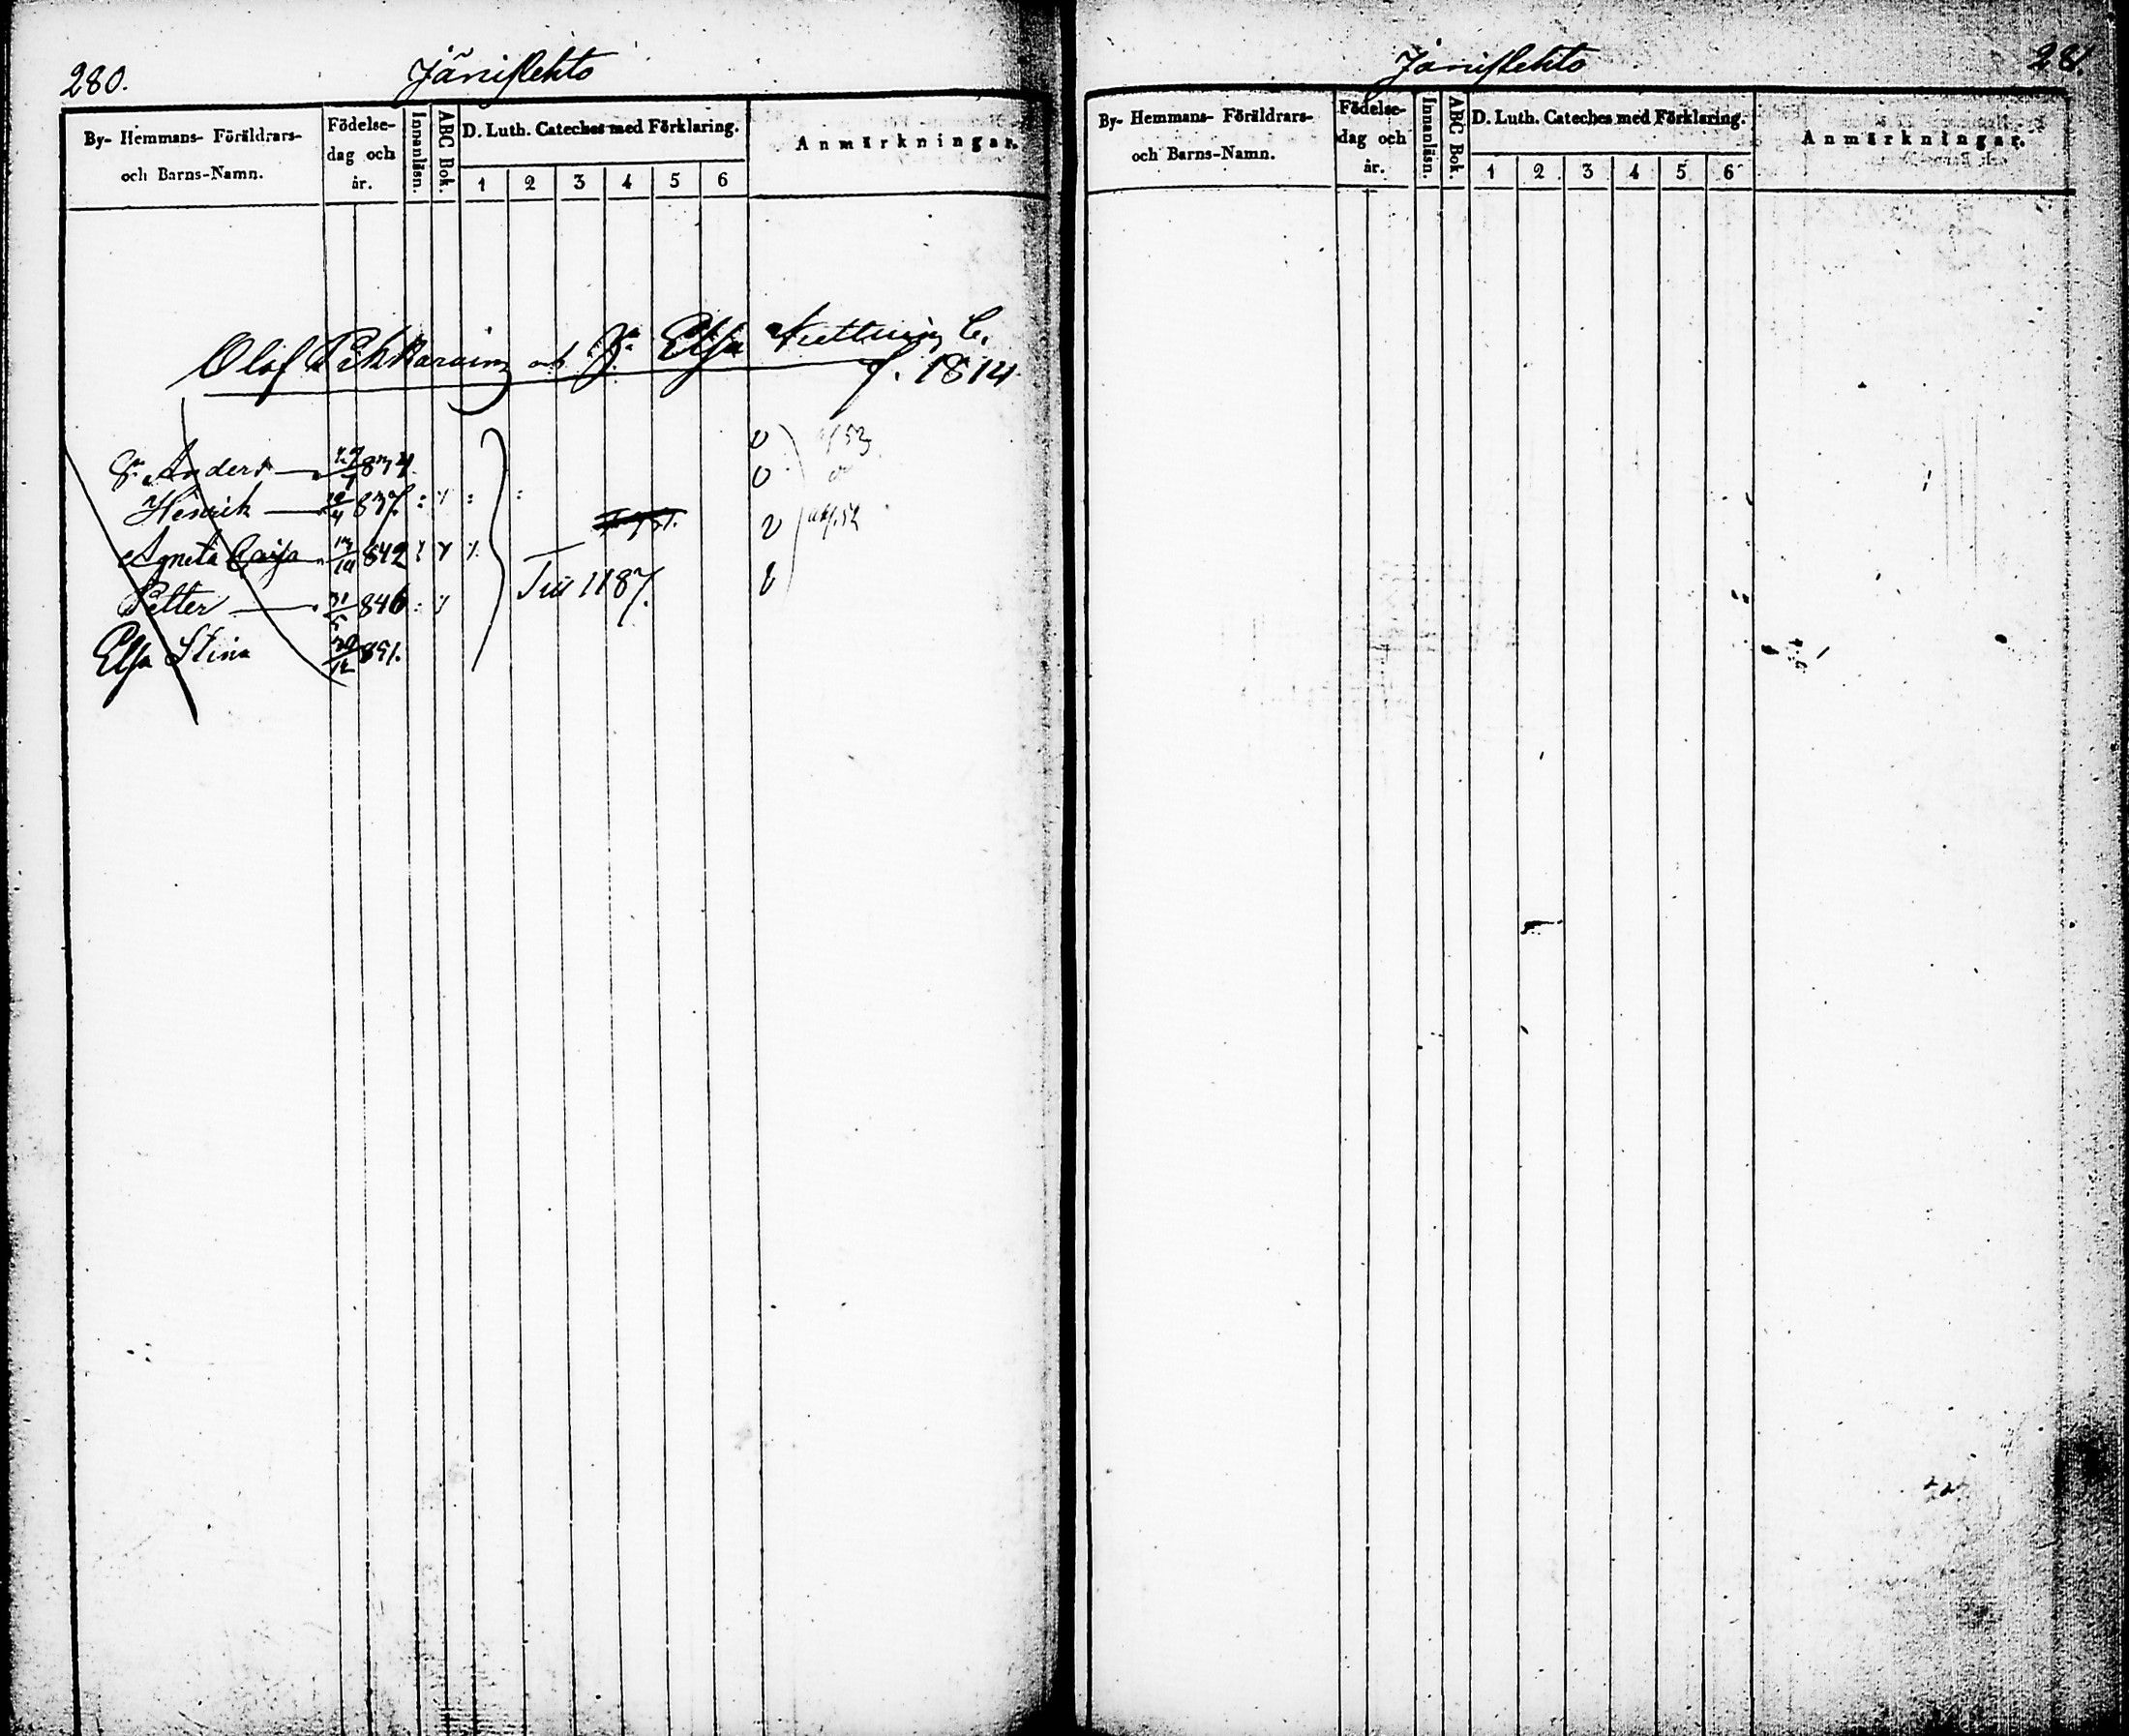 280.
Jänislehto
By- Hemmans- Föräldrars-
och Barns-Namn.
Födelse-
dag och
år.
Innanläsn.
ABC Bok.
D. Luth. Cateches med Förklaring.
1 2 3 4 5 6
Anmärkningar.
Olof Pikkarain och Elsa
f. 1814
S. Anders 834
Henrik 837
Agneta Caisa 13/10 842
Petter 31/5 846
Elsa Stina 851.
Till 1187.
Jänislehto
281.
By- Hemmans- Föräldrars-
och Barns-Namn.
Födelse-
dag och
år.
Innanläsn.
ABC Bok.
D. Luth. Cateches med Förklaring.
1 2 3 4 5 6
Anmärkningar.